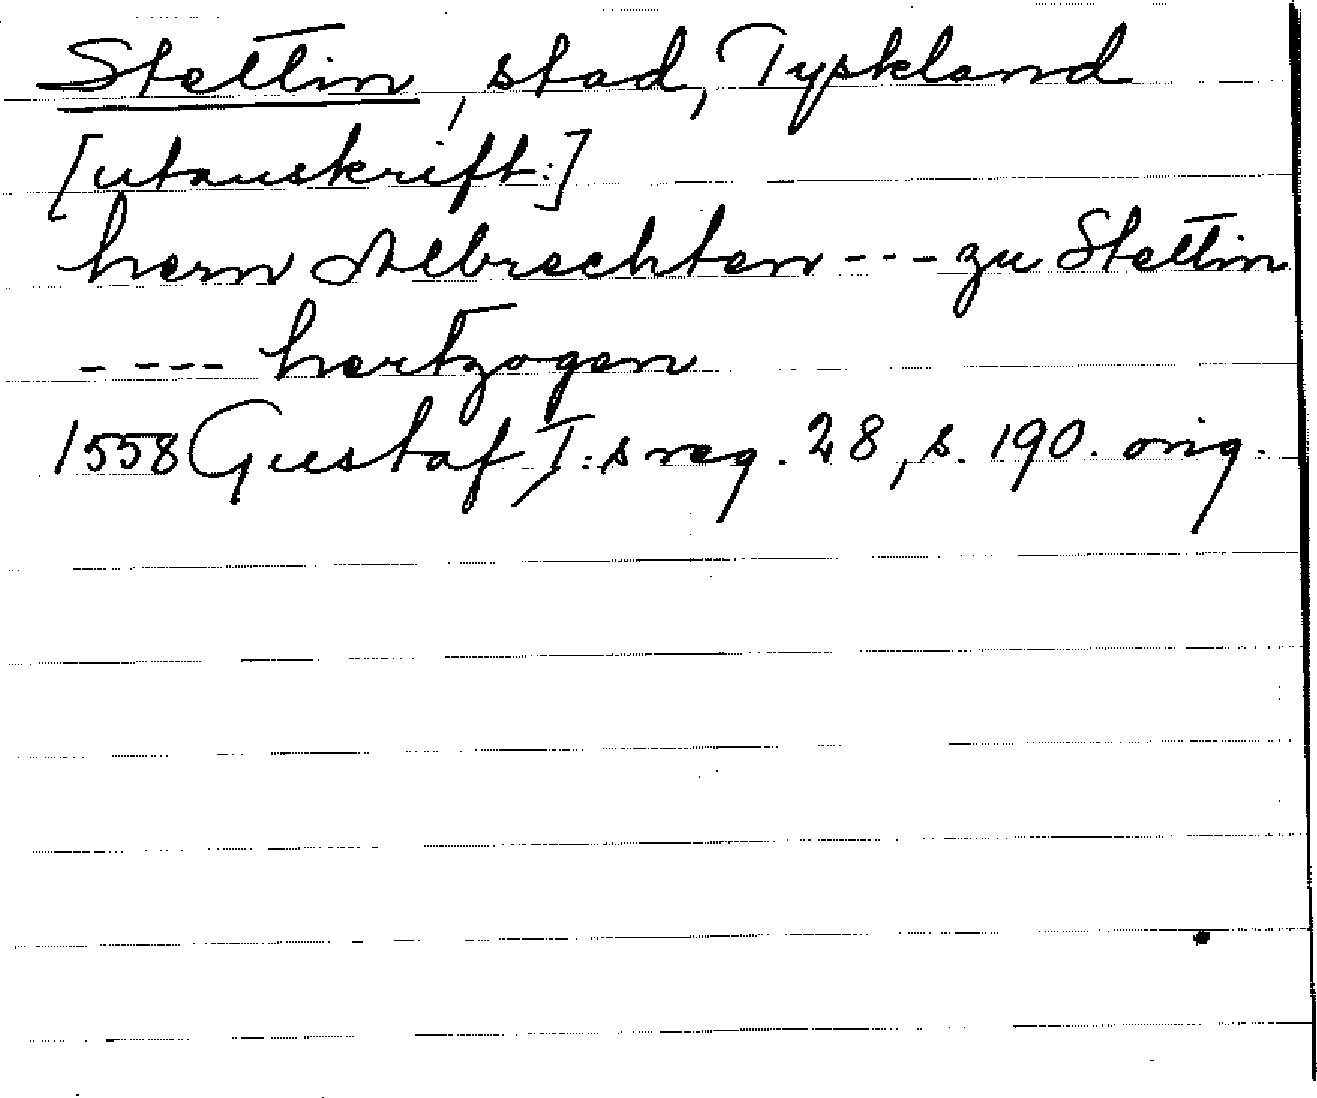 Stettin, stad, Tyskland
[utanskrift:]
hern Albrechten --- zu Stettin
---- hertzogen
1558 Gustaf I:s reg. 28, s. 190. orig.